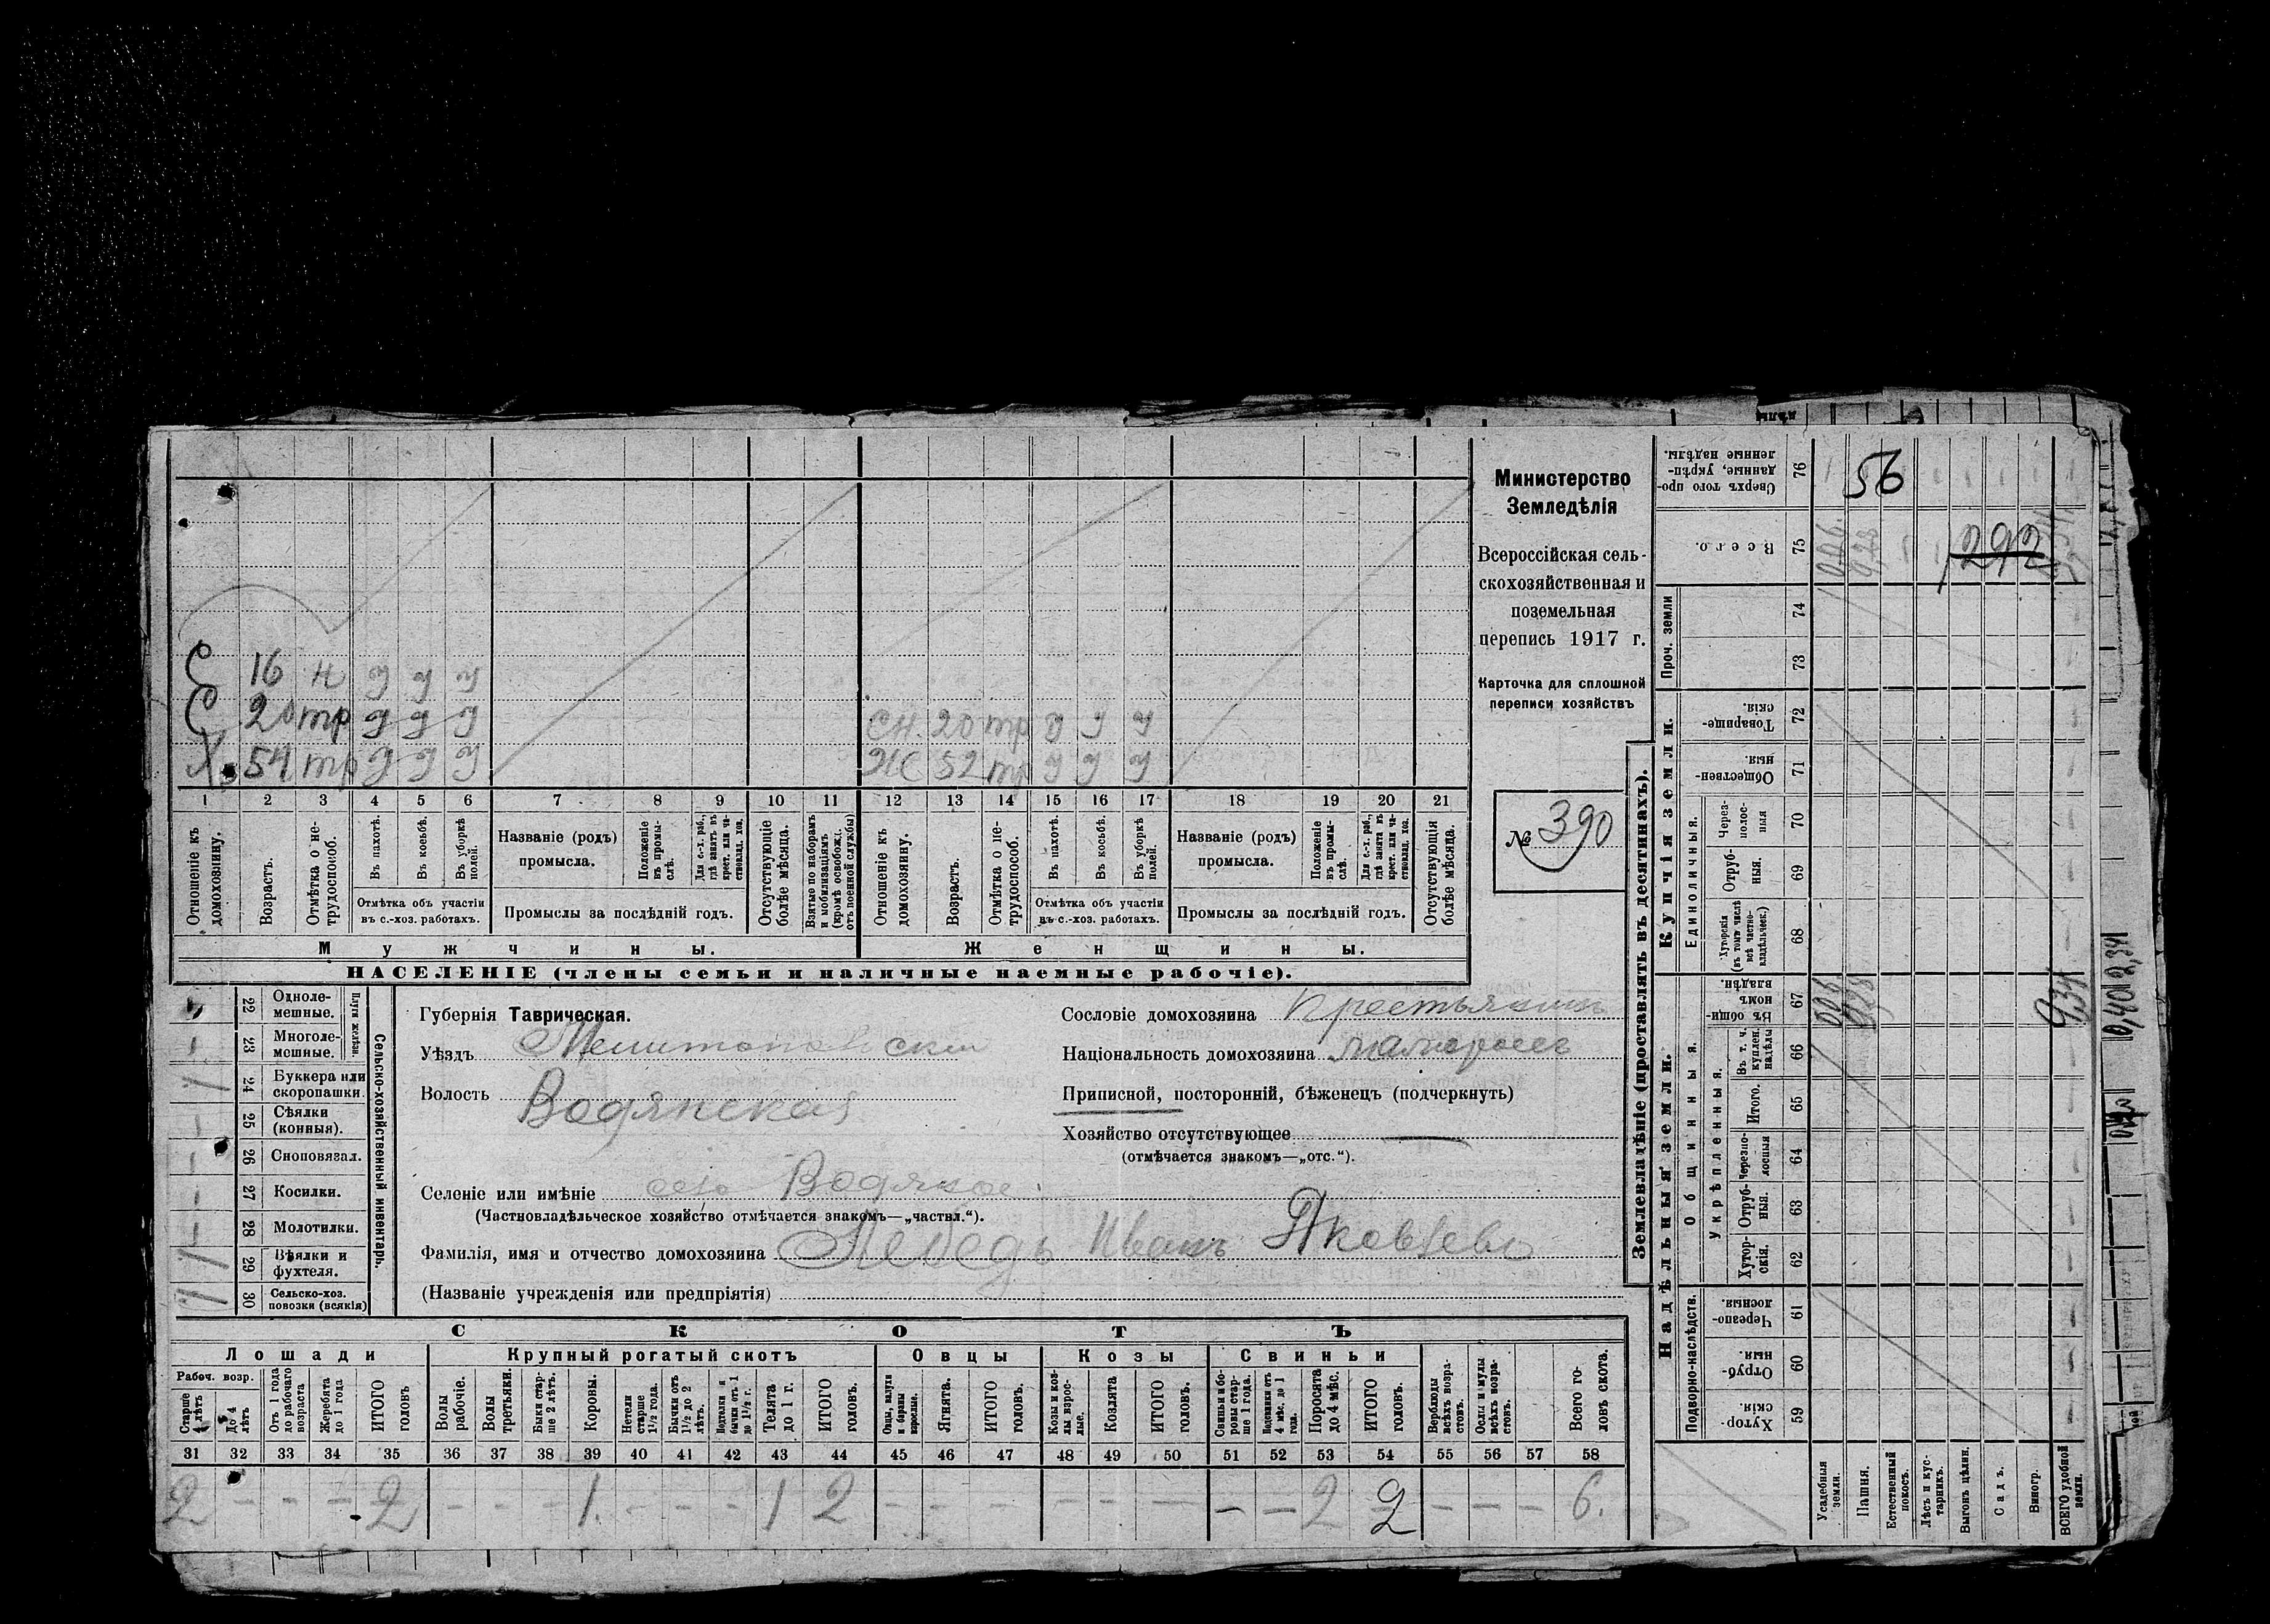 Министерство
Земледѣлія
Всероссійская сель-
скохозяйственная и
поземельная
перепись 1917 г.
Карточка для сплошной
переписи хозяйствъ
№ 390
С 16 н у у у
С 20 тр у у у
Х. 54 тр у у у
сн. 20 тр у у у
Ж 52 тр у у у
1 2 3 4 5 6 7 8 9 10 11 12 13 14 15 16 17 18 19 20 21
Отношеніе къ домохозяину.
Возрастъ.
Отмѣтка о не-трудоспособ.
Въ пахотѣ.
Въ косьбѣ.
Въ уборкѣ полей.
Отмѣтка объ участіи
въ с.-хоз. работахъ.
Названіе (родъ)
промысла.
Положеніе въ промы-слѣ.
Для с.-х. раб., гдѣ занятъ въ крест. или ча-стновлад. хоз.
Промыслы за послѣдній годъ.
Отсутствующіе болѣе мѣсяца.
Взятые по наборамъ и мобилизаціямъ (кромѣ освобожд. отъ военной службы)
Отношеніе къ домохозяину.
Возрастъ.
Отмѣтка о не-трудоспособ.
Въ пахотѣ.
Въ косьбѣ.
Въ уборкѣ полей.
Отмѣтка объ участіи
въ с.-хоз. работахъ.
Названіе (родъ)
промысла.
Положеніе въ промы-слѣ.
Для с.-х. раб., гдѣ занята въ крест. или ча-стновлад. хоз.
Промыслы за послѣдній годъ.
Отсутствующія болѣе мѣсяца.
Мужчины. Женщины.
НАСЕЛЕНІЕ (члены семьи и наличные наемные рабочіе).
Сельско-хозяйственный инвентарь.
Плуги желѣзн.
22 Одноле-мешные.
23 Многоле-мешные.
24 Буккера или скоропашки.
25 Сѣялки (конныя).
26 Сноповязал.
27 Косилки.
28 Молотилки.
29 Вѣялки и фухтеля.
30 Сельско-хоз. повозки (всякія)
Губернія Таврическая.
Уѣздъ Мелитопольскій
Волость Водянская
Сословіе домохозяина крестьянинъ
Національность домохозяина малороссъ
Приписной, посторонній, бѣженецъ (подчеркнуть)
Хозяйство отсутствующее
(отмѣчается знакомъ—„отс.“).
Селеніе или имѣніе село Водяное
(Частновладѣльческое хозяйство отмѣчается знакомъ—„частвл.“).
Фамилія, имя и отчество домохозяина Лебедь Иванъ Яковлевъ
(Названіе учрежденія или предпріятія)
СКОТЪ
Лошади Крупный рогатый скотъ Овцы Козы Свиньи
Рабоч. возр.
Старше 4 лѣтъ
До 4 лѣтъ
Отъ 1 года до рабочаго возраста
Жеребята до 1 года
ИТОГО головъ
Волы рабочіе.
Волы третьяки.
Быки стар-ше 2 лѣтъ.
Коровы.
Нетели старше 1½ года.
Бычки отъ 1½ до 2 лѣтъ.
Подтелки и бычки отъ 1 до 1½ г.
Телята до 1 г.
ИТОГО головъ.
Овцы, валухи и бараны взрослые.
Ягнята.
ИТОГО головъ.
Козы и коз-лы взрос-лые.
Козлята
ИТОГО головъ.
Свиньи и бо-ровы стар-ше 1 года.
Подсвинки отъ 4 мѣс. до 1 года.
Поросята до 4 мѣс.
ИТОГО головъ.
Верблюды всѣхъ возра-стовъ.
Ослы и мулы всѣхъ возра-стовъ.
Всего го-ловъ скота.
31 32 33 34 35 36 37 38 39 40 41 42 43 44 45 46 47 48 49 50 51 52 53 54 55 56 57 58
2 – – – 2 – – – 1. – – – 1 2 – – – – – – – – 2 2 – – – 6.
Землевладѣніе (проставлять въ десятинахъ).
Надѣльныя земли. Купчія земли. Проч. земли
Подворно-наслѣдств.
Общинныя.
Укрѣпленныя.
Единоличныя.
Сверхъ того про-данные, укрѣп-ленные надѣлы. 76
Всего. 75
74
73
Товарище-скія. 72
Обществен-ныя. 71
Через-полос-ныя 70
Отруб-ныя. 69
Хуторскія (въ томъ числѣ всѣ частно-владѣльческ.) 68
Въ общин-номъ владѣн. 67
Въ т. ч. куплен. надѣлы 66
Итого. 65
Черезпо-лосныя 64
Отруб-ныя. 63
Хутор-скія. 62
Черезпо-лосныя. 61
Отруб-ныя. 60
Хутор-скія. 59
Усадебныя земли.
Пашня.
Естественный покосъ.
Лѣсъ и кус-тарникъ.
Выгонъ цѣлин.
Садъ.
Виногр.
ВСЕГО удобной земли.
56
292
9,34